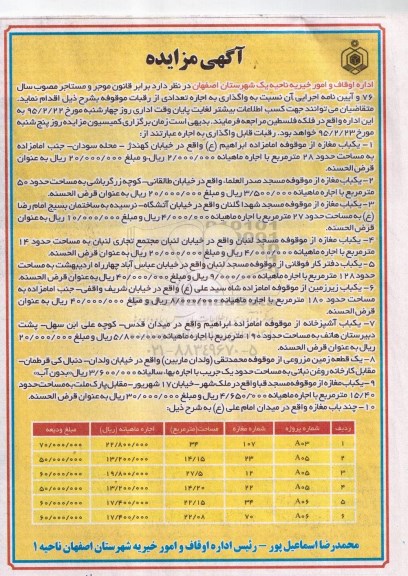 آگهی مزایده
اداره اوقاف و امور خیریه ناحیه یک شهرستان اصفهان در نظر دارد برابر قانون موجر و مستاجر مصوب سال
۷۶ و آیین نامه اجرایی آن نسبت به واگذاری به اجاره تعدادی از رقبات موقوفه بشرح ذیل اقدام نماید.
متقاضیان می توانند جهت کسب اطلاعات بیشتر لغایت پایان وقت اداری روز چهارشنبه مورخ ۹۵/۲/۲۲ به
این اداره واقع در فلکه فلسطین مراجعه فرمایند. بدیهی است زمان برگزاری کمیسیون مزایده روز پنج شنبه
مورخ ۹۵/۲/۲۳ خواهد بود. رقبات قابل واگذاری به اجاره عبارتند از:
۱- یکباب مغازه از موقوفه امامزاده ابراهیم (ع) واقع در خیابان کهندژ - محله سودان- جنب امامزاده
به مساحت حدود ۲۸ مترمربع با اجاره ماهیانه ۲/۰۰۰/۰۰۰ ریال و مبلغ ۲۰/۰۰۰/۰۰۰ ریال به عنوان
قرض الحسنه.
۲-یکباب مغازه از موقوفه مسجد صدر العلما، واقع در خیابان طالقانی-کوچه زرگرباشی به مساحت حدود ۵۰
مترمربع با اجاره ماهیانه ۳/۵۰۰/۰۰۰ ریال و مبلغ ۲۰/۰۰۰/۰۰۰ ریال به عنوان قرض الحسنه.
۳- یکباب مغازه از موقوفه مسجد شهدا گلنان واقع در خیابان آتشگاه- نرسیده به ساختمان بسیج امام رضا
(ع) به مساحت حدود ۲۷ مترمربع با اجاره ماهیانه ۴/۰۰۰/۰۰۰ ریال و مبلغ ۱۰/۰۰۰/۰۰۰ ریال به عنوان
قرض الحسنه.
۴- یکباب مغازه از موقوفه مسجد لنبان واقع در خیابان لنبان مجتمع تجاری لنبان به مساحت حدود ۱۴
مترمربع با اجاره ماهیانه ۴/۰۰۰/۰۰۰ ریال و مبلغ ۲۰/۰۰۰/۰۰۰ ریال به عنوان قرض الحسنه.
۵- یکباب دفتر کار فوقانی از موقوفه مسجد لنبان واقع در خیابان عباس آباد چهارراه اردیبهشت به مساحت
حدود ۱۲۸ مترمربع با اجاره ماهیانه ۹/۰۰۰/۰۰۰ ریال و مبلغ ۴۰/۰۰۰/۰۰۰ ریال به عنوان قرض الحسنه.
۶- یکباب زیرزمین از موقوفه امامزاده شاه سید علی (ع) واقع در خیابان شریف واقفی- جنب امامزاده به
مساحت حدود ۱۸۰ مترمربع با اجاره ماهیانه ۸/۰۰۰/۰۰۰ ریال و مبلغ ۴۰/۰۰۰/۰۰۰ ریال به عنوان
قرض الحسنه.
۷- یکباب آشپزخانه از موقوفه امامزاده ابراهیم واقع در میدان قدس- کوچه علی ابن سهل- پشت
دبیرستان هاتف به مساحت حدود ۱۹۰ مترمربع با اجاره ماهیانه ۵/۸۰۰/۰۰۰ ریال و مبلغ ۲۰/۰۰۰/۰۰۰
ریال به عنوان قرض الحسنه.
۸- یک قطعه زمین مزروعی از موقوفه محمدتقی (ولدان ماربین) واقع در خیابان ولدان- دنبال کی قرطمان-
مقابل کارخانه روغن نباتی به مساحت حدود یک جریب با اجاره بهای سالیانه ۳/۶۰۰/۰۰۰ ریال «بدون آب»
۹-یکباب مغازه از موقوفه مسجد قبا واقع در ملک شهر- خیابان ۱۷ شهریور- مقابل پارک ملت به مساحت حدود
۱۵/۴۰ مترمربع با اجاره ماهیانه ۴/۶۵۰/۰۰۰ ریال و مبلغ ۳۰/۰۰۰/۰۰۰ ریال به عنوان قرض الحسنه.
۱۰- چند باب مغازه واقع در میدان امام علی (ع) به شرح ذیل:
ردیف شماره پروژه شماره مغازه مساحت(مترمربع) اجاره ماهیانه (ریال) مبلغ ودیعه
۱ A۰۳ ۱۰۷ ۳۴ ۲۲/۸۰۰/۰۰۰ ۷۰/۰۰۰/۰۰۰
۲ A۰۵ ۲۳ ۱۴/۱۵ ۱۳/۲۰۰/۰۰۰ ۵۰/۰۰۰/۰۰۰
۳ A۰۵ ۱۲ ۲۷/۵ ۱۹/۸۰۰/۰۰۰ ۶۰/۰۰۰/۰۰۰
۴ A۰۵ ۲۲ ۱۴/۲۰ ۱۳/۲۰۰/۰۰۰ ۵۰/۰۰۰/۰۰۰
۵ A۰۶ ۳۴ ۲۲/۱۵ ۱۷/۴۰۰/۰۰۰ ۶۰/۰۰۰/۰۰۰
۶ A۰۶ ۷۰ ۲۲/۰۸ ۱۷/۴۰۰/۰۰۰ ۶۰/۰۰۰/۰۰۰
محمدرضا اسماعیل پور - رئیس اداره اوقاف و امور خیریه شهرستان اصفهان ناحیه ۱